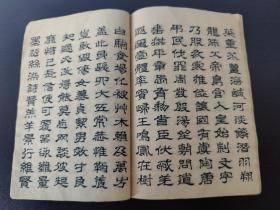 菜重芥薑海鹹河淡鱗潛羽翔
龍師火帝鳥官人皇始制文字
乃服衣裳推位讓國有虞陶唐
弔民伐罪周發殷湯坐朝問道
垂拱平章愛育黎首臣伏戎羌
遐邇壹體率賓歸王鳴鳳在樹
白駒食場化被艸木賴及萬方
蓋此身髮四大五常恭惟鞠養
豈敢毀傷女慕貞潔男效才良
知過必改得能莫忘罔談彼短
靡恃己長信使可覆器欲難量
墨悲絲染詩讚羔羊景行維賢